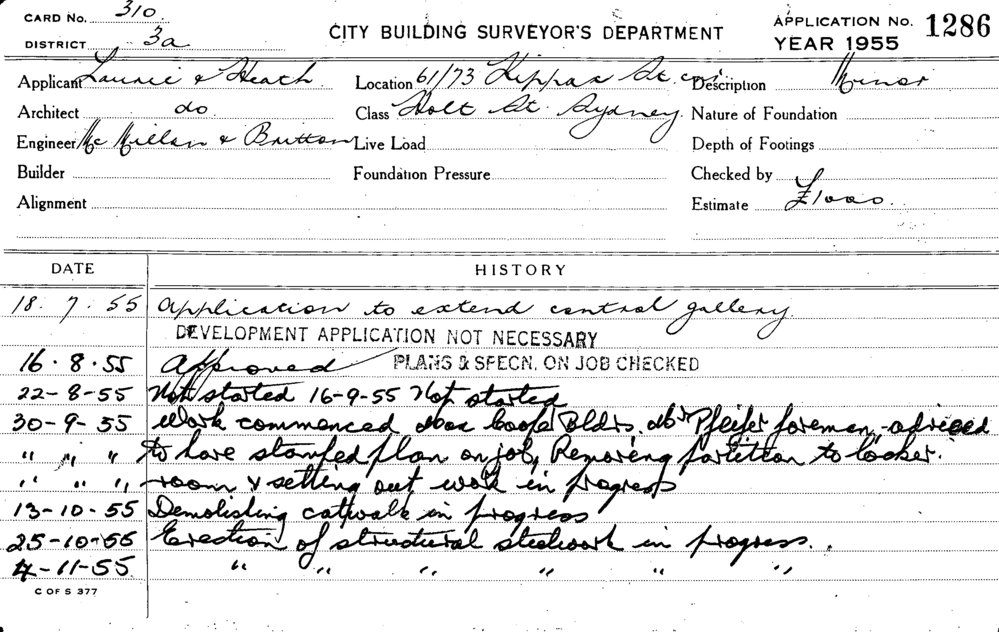 CARD No. 310
DISTRICT 3a
CITY BUILDING SURVEYOR'S DEPARTMENT
APPLICATION No. 1286
YEAR 1955
Applicant Laurie & Heath Location 61/73 Kippax St. cnr Description Minor
Architect do Class Holt St. Sydney. Nature of Foundation
Engineer McMillan & Britton Live Load Depth of Footings
Builder Foundation Pressure Checked by
Alignment Estimate £1000.
DATE HISTORY
18. 7. 55 Application to extend control gallery
DEVELOPMENT APPLICATION NOT NECESSARY
16. 8. 55 Approved PLANS & SPECN. ON JOB CHECKED
22-8-55 Not started 16-9-55 Not started
30-9-55 Work commenced Bldrs. Mr Pfeifer foreman, advised
" " " to have stamped plan on job, Removing partition to locker.
" " " room & setting out work in progress
13-10-55 Demolishing catwalk in progress
25-10-55 Erection of structural steelwork in progress.
4-11-55 " " " " " "
C OF S 377